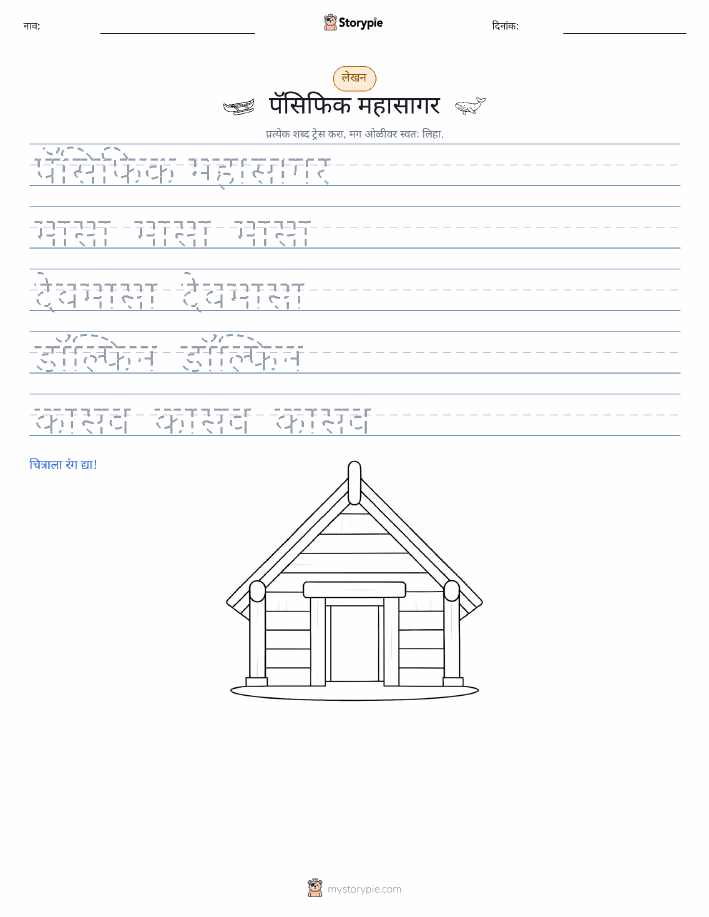 नाव:
Storypie
दिनांक:
लेखन
पॅसिफिक महासागर
प्रत्येक शब्द ट्रेस करा, मग ओळीवर स्वतः लिहा.
पॅसिफिक महासागर
मासा मासा मासा
देवमासा देवमासा
डॉल्फिन डॉल्फिन
कासव कासव कासव
चित्राला रंग द्या!
mystorypie.com